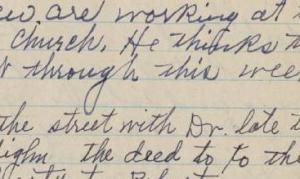 are working at
church. He thinks t
through this wee
the street with Dr. late t
the deed to to the